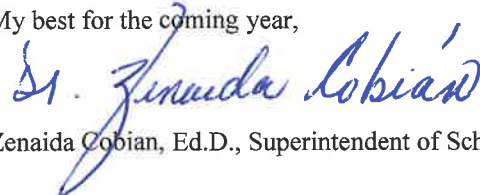 My best for the coming year,
Dr. Zenaida Cobián
Zenaida Cobian, Ed.D., Superintendent of Sch